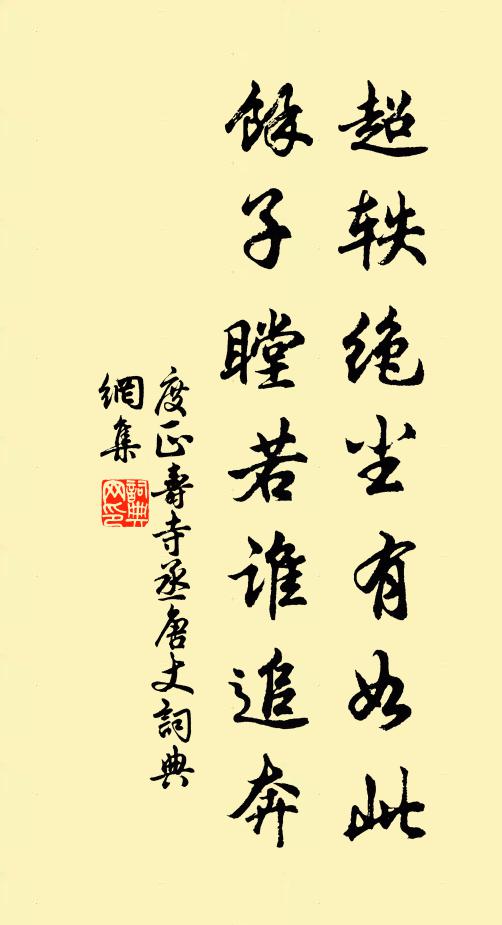 超轶绝尘有如此
馀子瞠若谁追奔
度正寿寺丞唐丈词典
網集
詞典網印